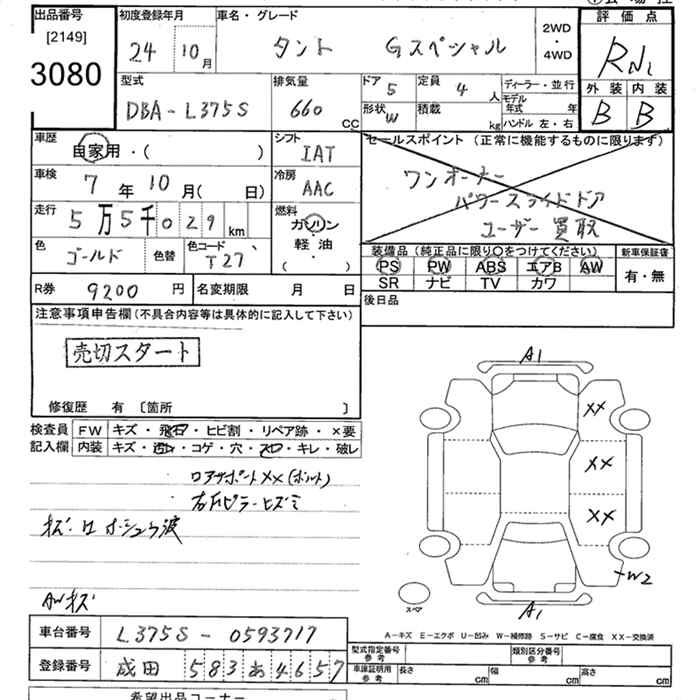 出品番号 初度登録年月 車名・グレード 2WD・4WD 評価点
[2149]
3080 24 10月 タント Gスペシャル RN1
外装 内装
B B
型式 排気量 ドア 5 定員 4人 ディーラー・並行
DBA-L375S 660 CC 形状 W 積載 kg モデル年式 年
ハンドル 左・右
車歴 自家用・( ) シフト IAT セールスポイント (正常に機能するものに限ります)
車検 7年10月( 日) 冷房 AAC ワンオーナー
パワースライドドア
走行 5万5千029km 燃料 ガソリン・軽油・( ) ユーザー買取
色 ゴールド 色替 色コード T27
装備品 (純正品に限り○をつけてください) 新車保証書
PS PW ABS エアB AW 有・無
SR ナビ TV カワ
R券 9200円 名変期限 月 日 後日品
注意事項申告欄(不具合内容等は具体的に記入して下さい)
売切スタート
修復歴 有 〔箇所 〕
検査員記入欄 FW キズ・飛石・ヒビ割・リペア跡・×要
内装 キズ・・コゲ・穴・・キレ・破レ
ロアサポートXX(ボルト)
右Fピラーヒズミ
AWキズ
A1
XX
XX
XX
W2
スペア
A1
A-キズ E-エクボ U-凹み W-補修跡 S-サビ C-腐食 XX-交換済
車台番号 L375S-0593717
型式指定番号 参考 類別区分番号 参考
登録番号 成田 583 あ 4657
車庫証明用 参考 長さ cm 幅 cm 高さ cm
希望出品コーナー